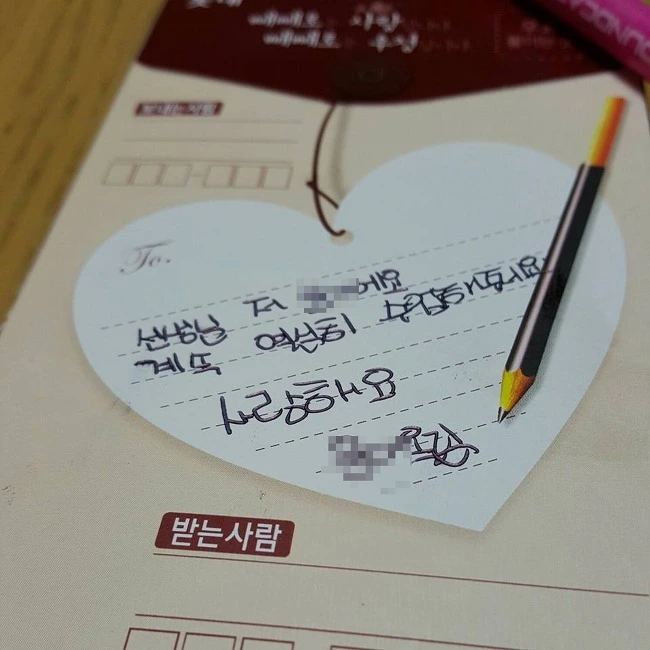 빼빼로 사랑
빼빼로 우정
보내는사람
To.
선생님 저 에요
계속 열심히 수업해주세요
사랑해요
올림
받는사람